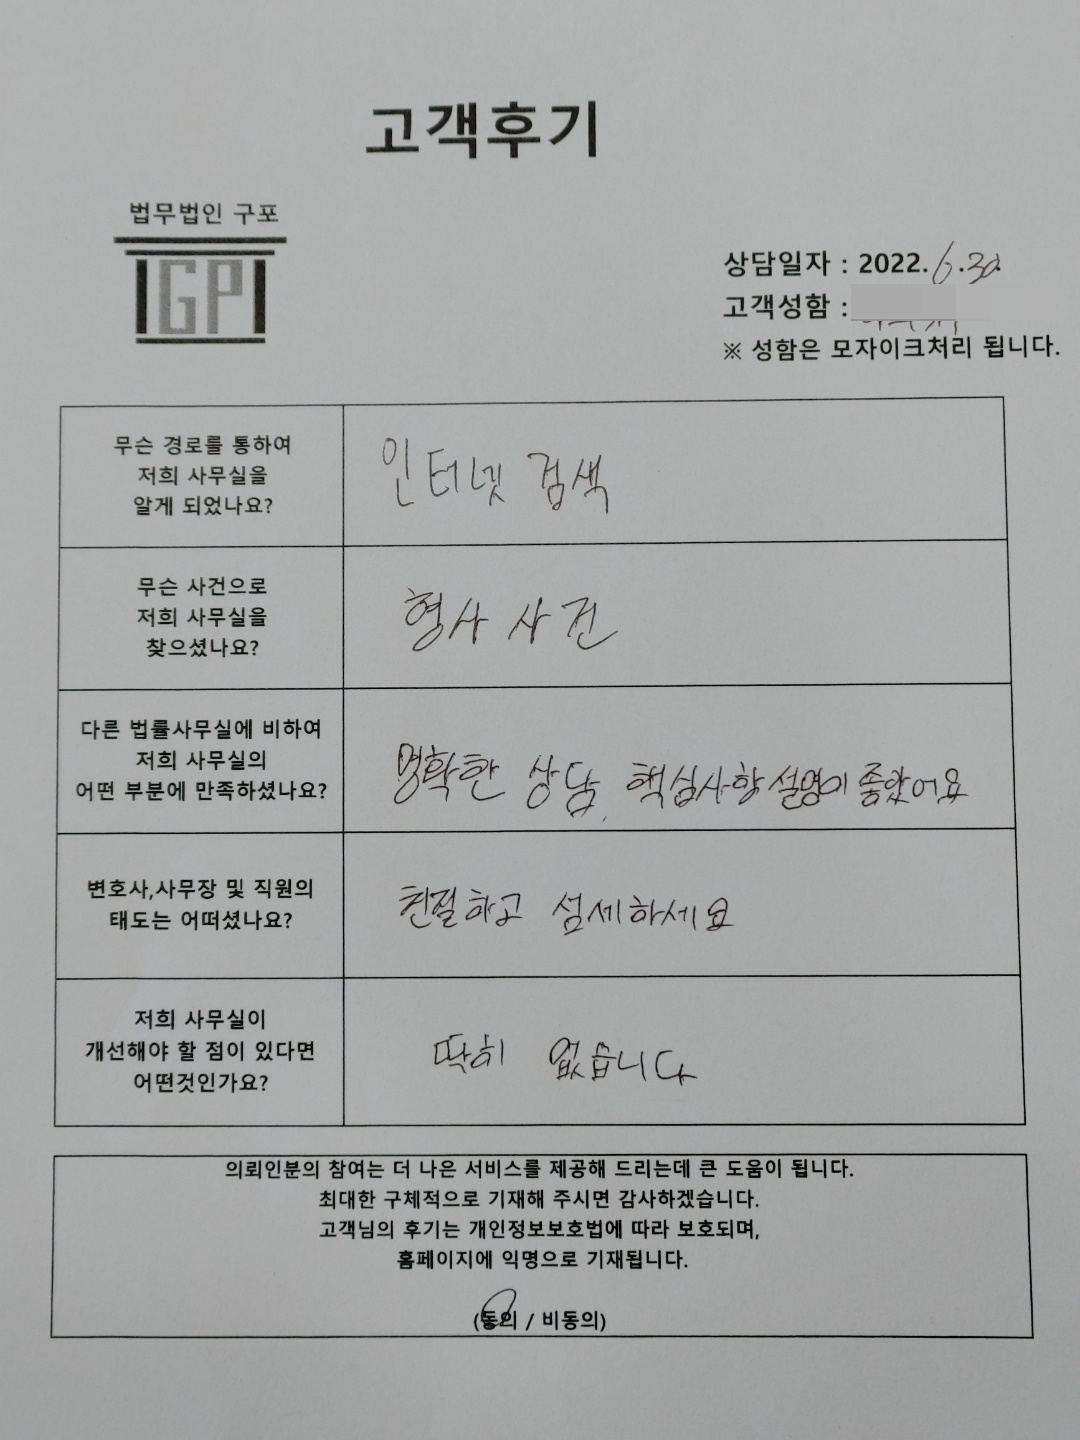 고객후기
법무법인 구포
GP
상담일자 : 2022. 6. 30.
고객성함 :
※ 성함은 모자이크처리 됩니다.
무슨 경로를 통하여
저희 사무실을
알게 되었나요?
인터넷 검색
무슨 사건으로
저희 사무실을
찾으셨나요?
형사 사건
다른 법률사무실에 비하여
저희 사무실의
어떤 부분에 만족하셨나요?
명확한 상담, 핵심사항 설명이 좋았어요
변호사,사무장 및 직원의
태도는 어떠셨나요?
친절하고 섬세하세요
저희 사무실이
개선해야 할 점이 있다면
어떤것인가요?
딱히 없습니다
의뢰인분의 참여는 더 나은 서비스를 제공해 드리는데 큰 도움이 됩니다.
최대한 구체적으로 기재해 주시면 감사하겠습니다.
고객님의 후기는 개인정보보호법에 따라 보호되며,
홈페이지에 익명으로 기재됩니다.
(동의 / 비동의)